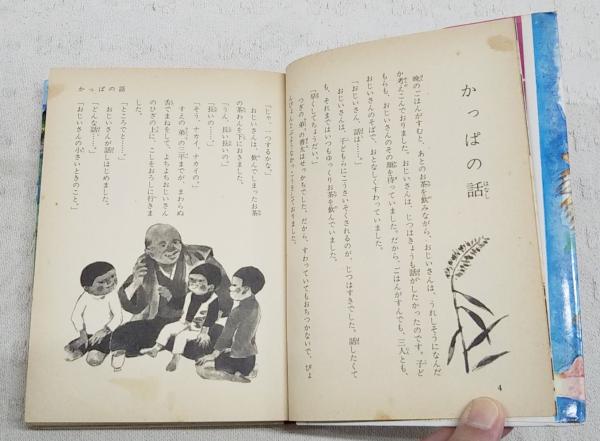 かっぱの話
はなし
晩のごはんがすむと、あとのお茶を飲みながら、おじいさんは、うれしそうになんだ
か考えこんでおりました。おじいさんは、じつはきょうも話がしたかったのです。子ど
もらも、おじいさんのその顔を待っていました。だから、ごはんがすんでも、三人とも、
おじいさんのそばで、おとなしくすわっていました。
「おじいさん、話は……。」
おじいさんは、子どもらにこうさいそくされるのが、じつはすきでした。話したくて
も、それまではいつもゆっくりお茶を飲んでいました。
「早くしてちょうだい。」
つぎの弟の善太はせっかちでした。だから、すわっていてもおちつかないで、ぴょ
4
かっぱの話
「じゃ、一つするかな。」
おじいさんは、飲んでしまったお茶
の茶わんを下におきました。
「うん、長い長いの。」
「長いの……。」
「そう、ナカイ、ナカイの。」
すえの弟の三平までが、まわらぬ
舌でまねをして、よちよちおじいさん
のひざの上に、こしをおろしに行きま
した。
「ところでと……。」
「どんな話……。」
おじいさんが話しはじめました。
「おじいさんの小さいときのこと。」